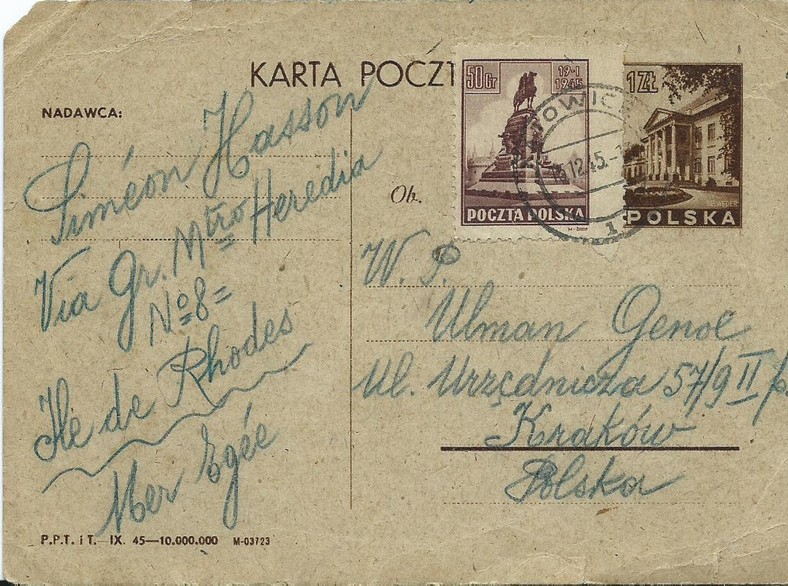 KARTA POCZT
NADAWCA:
Siméon Hasson
Via Gr. Mtro Heredia
No 8=
Ile de Rhodes
Mer Egée
P.P.T. i T.— IX. 45—10.000.000 M-03723
50 Gr
19·I 1945
POCZTA POLSKA
1 ZŁ
BELWEDER
POLSKA
12.45.
1
Ob.
W. P.
Ulman Genoc
Ul. Urzędnicza 57/9 II p.
Kraków
Polska